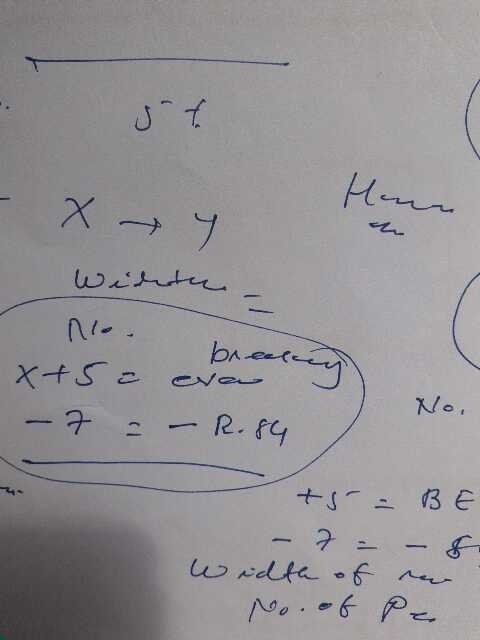 5 t
X → y
Width =
No.
breaking
x+5 = even
- 7 = - R.84
No.
+5 = BE
- 7 = - 8
Width of
No. of P